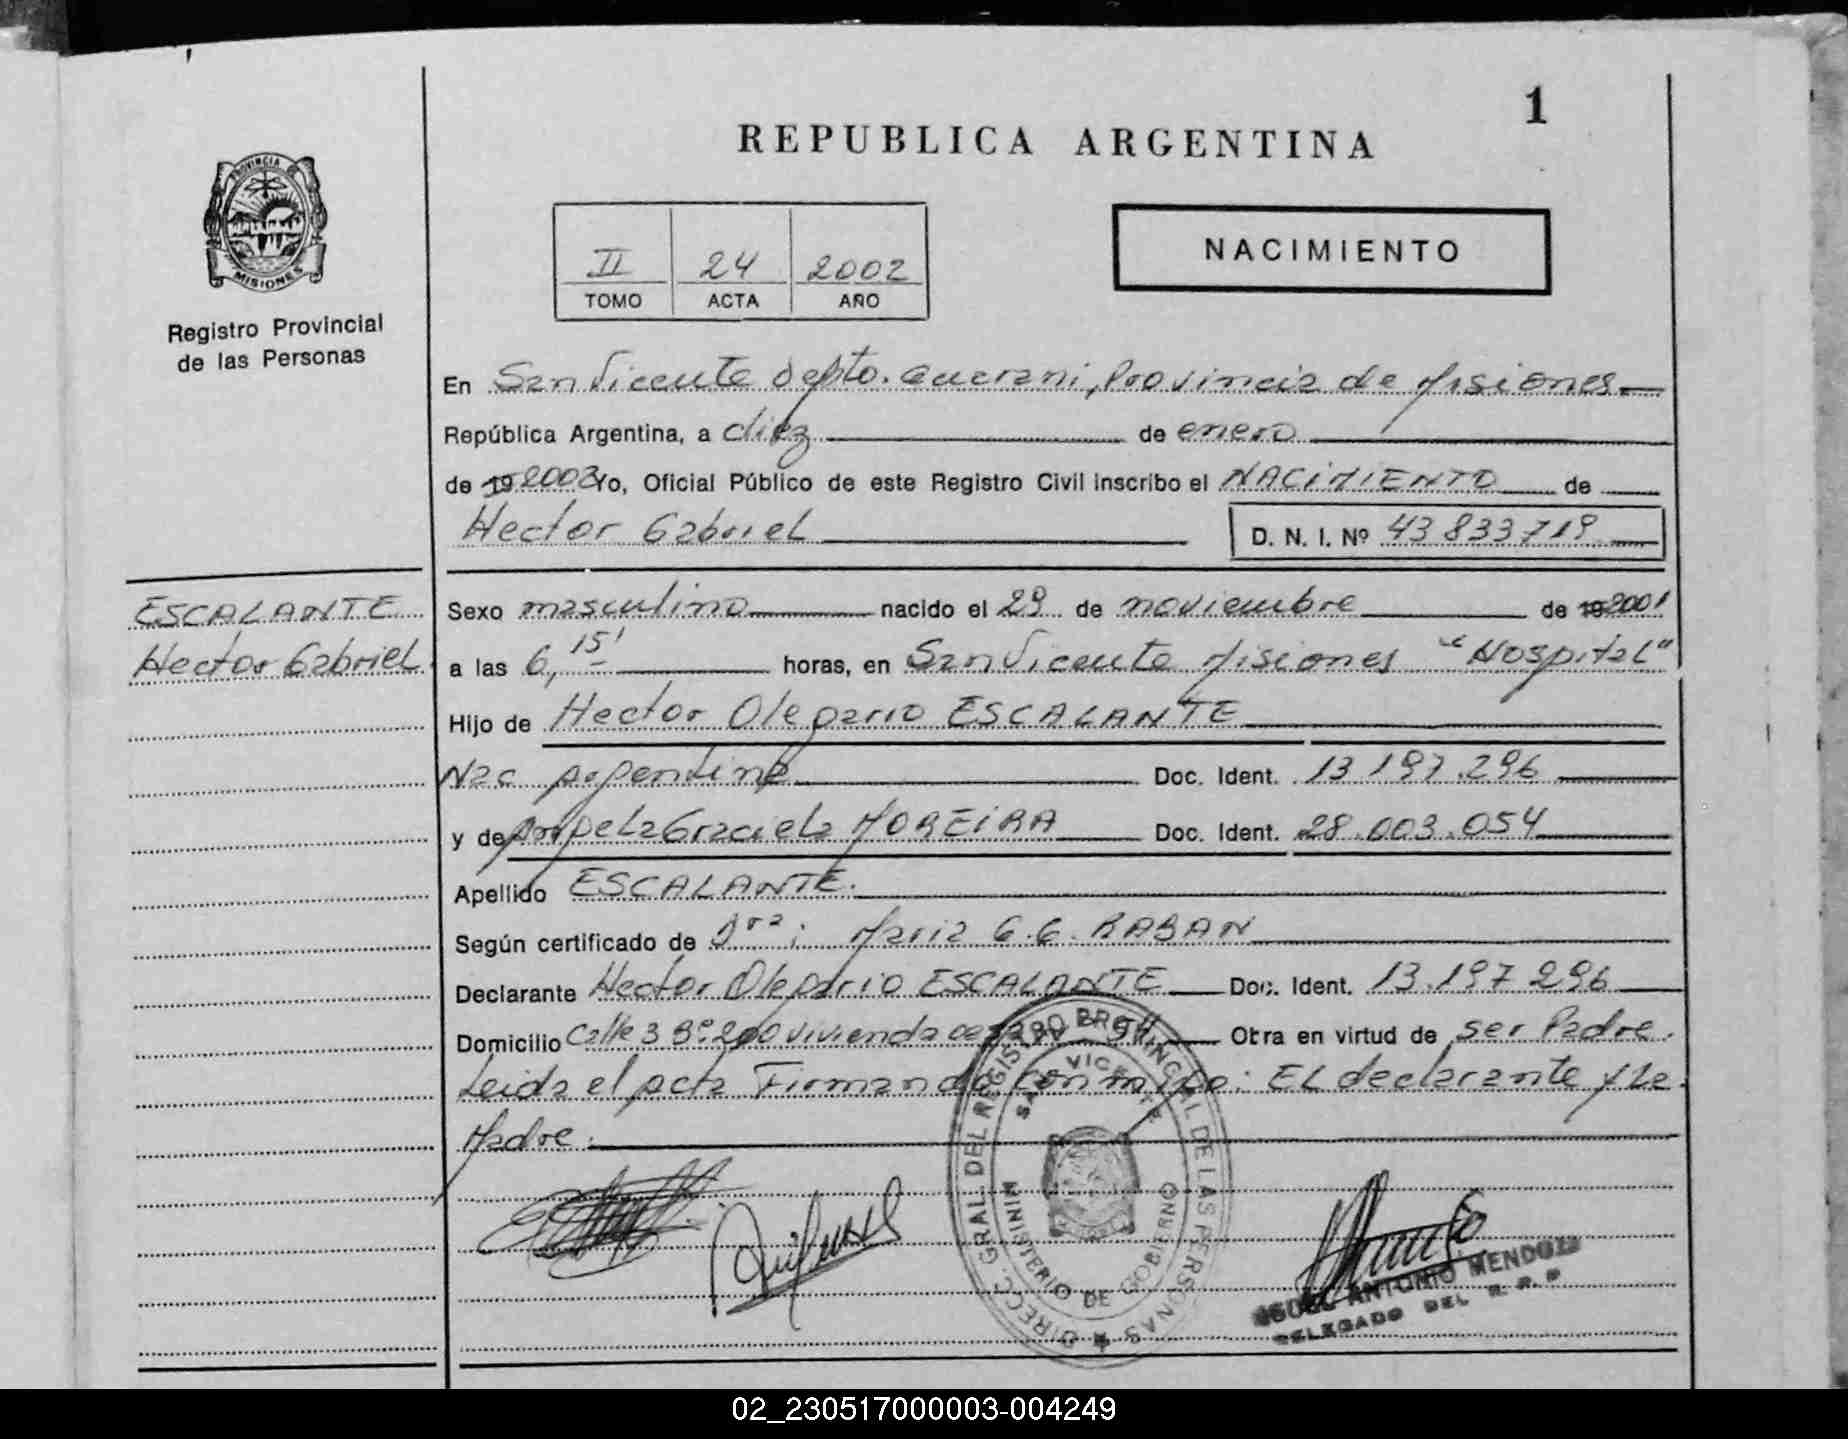 1
REPUBLICA ARGENTINA
PROVINCIA DE
MISIONES
Registro Provincial
de las Personas
II 24 2002
TOMO ACTA AÑO
NACIMIENTO
En San Vicente depto. Guarani, Provincia de Misiones
República Argentina, a diez de enero
de 19 2002 Yo, Oficial Público de este Registro Civil inscribo el NACIMIENTO de
Hector Gabriel D. N. I. Nº 43 833 719
ESCALANTE
Hector Gabriel
Sexo masculino nacido el 29 de noviembre de 19 2001
a las 6,15' horas, en San Vicente Misiones "Hospital"
Hijo de Hector Olegario ESCALANTE
Nac argentina Doc. Ident. 13 197.296
y de Angela Graciela MOREIRA Doc. Ident. 28.003.054
Apellido ESCALANTE.
Según certificado de Dra: Maria G.G. RABAN
Declarante Hector Olegario ESCALANTE Doc. Ident. 13.197 296
Domicilio Calle 3 Bº 200 vivienda 54 Otra en virtud de ser Padre.
Leida el acta Firmando con migo: El declarante y la
Madre.
DIRECC. GRAL. DEL REGISTRO PROVINCIAL DE LAS PERSONAS
SAN VICENTE
MINISTERIO DE GOBIERNO
ANTONIO MENDOZA
DELEGADO DEL R. P. P
02_230517000003-004249